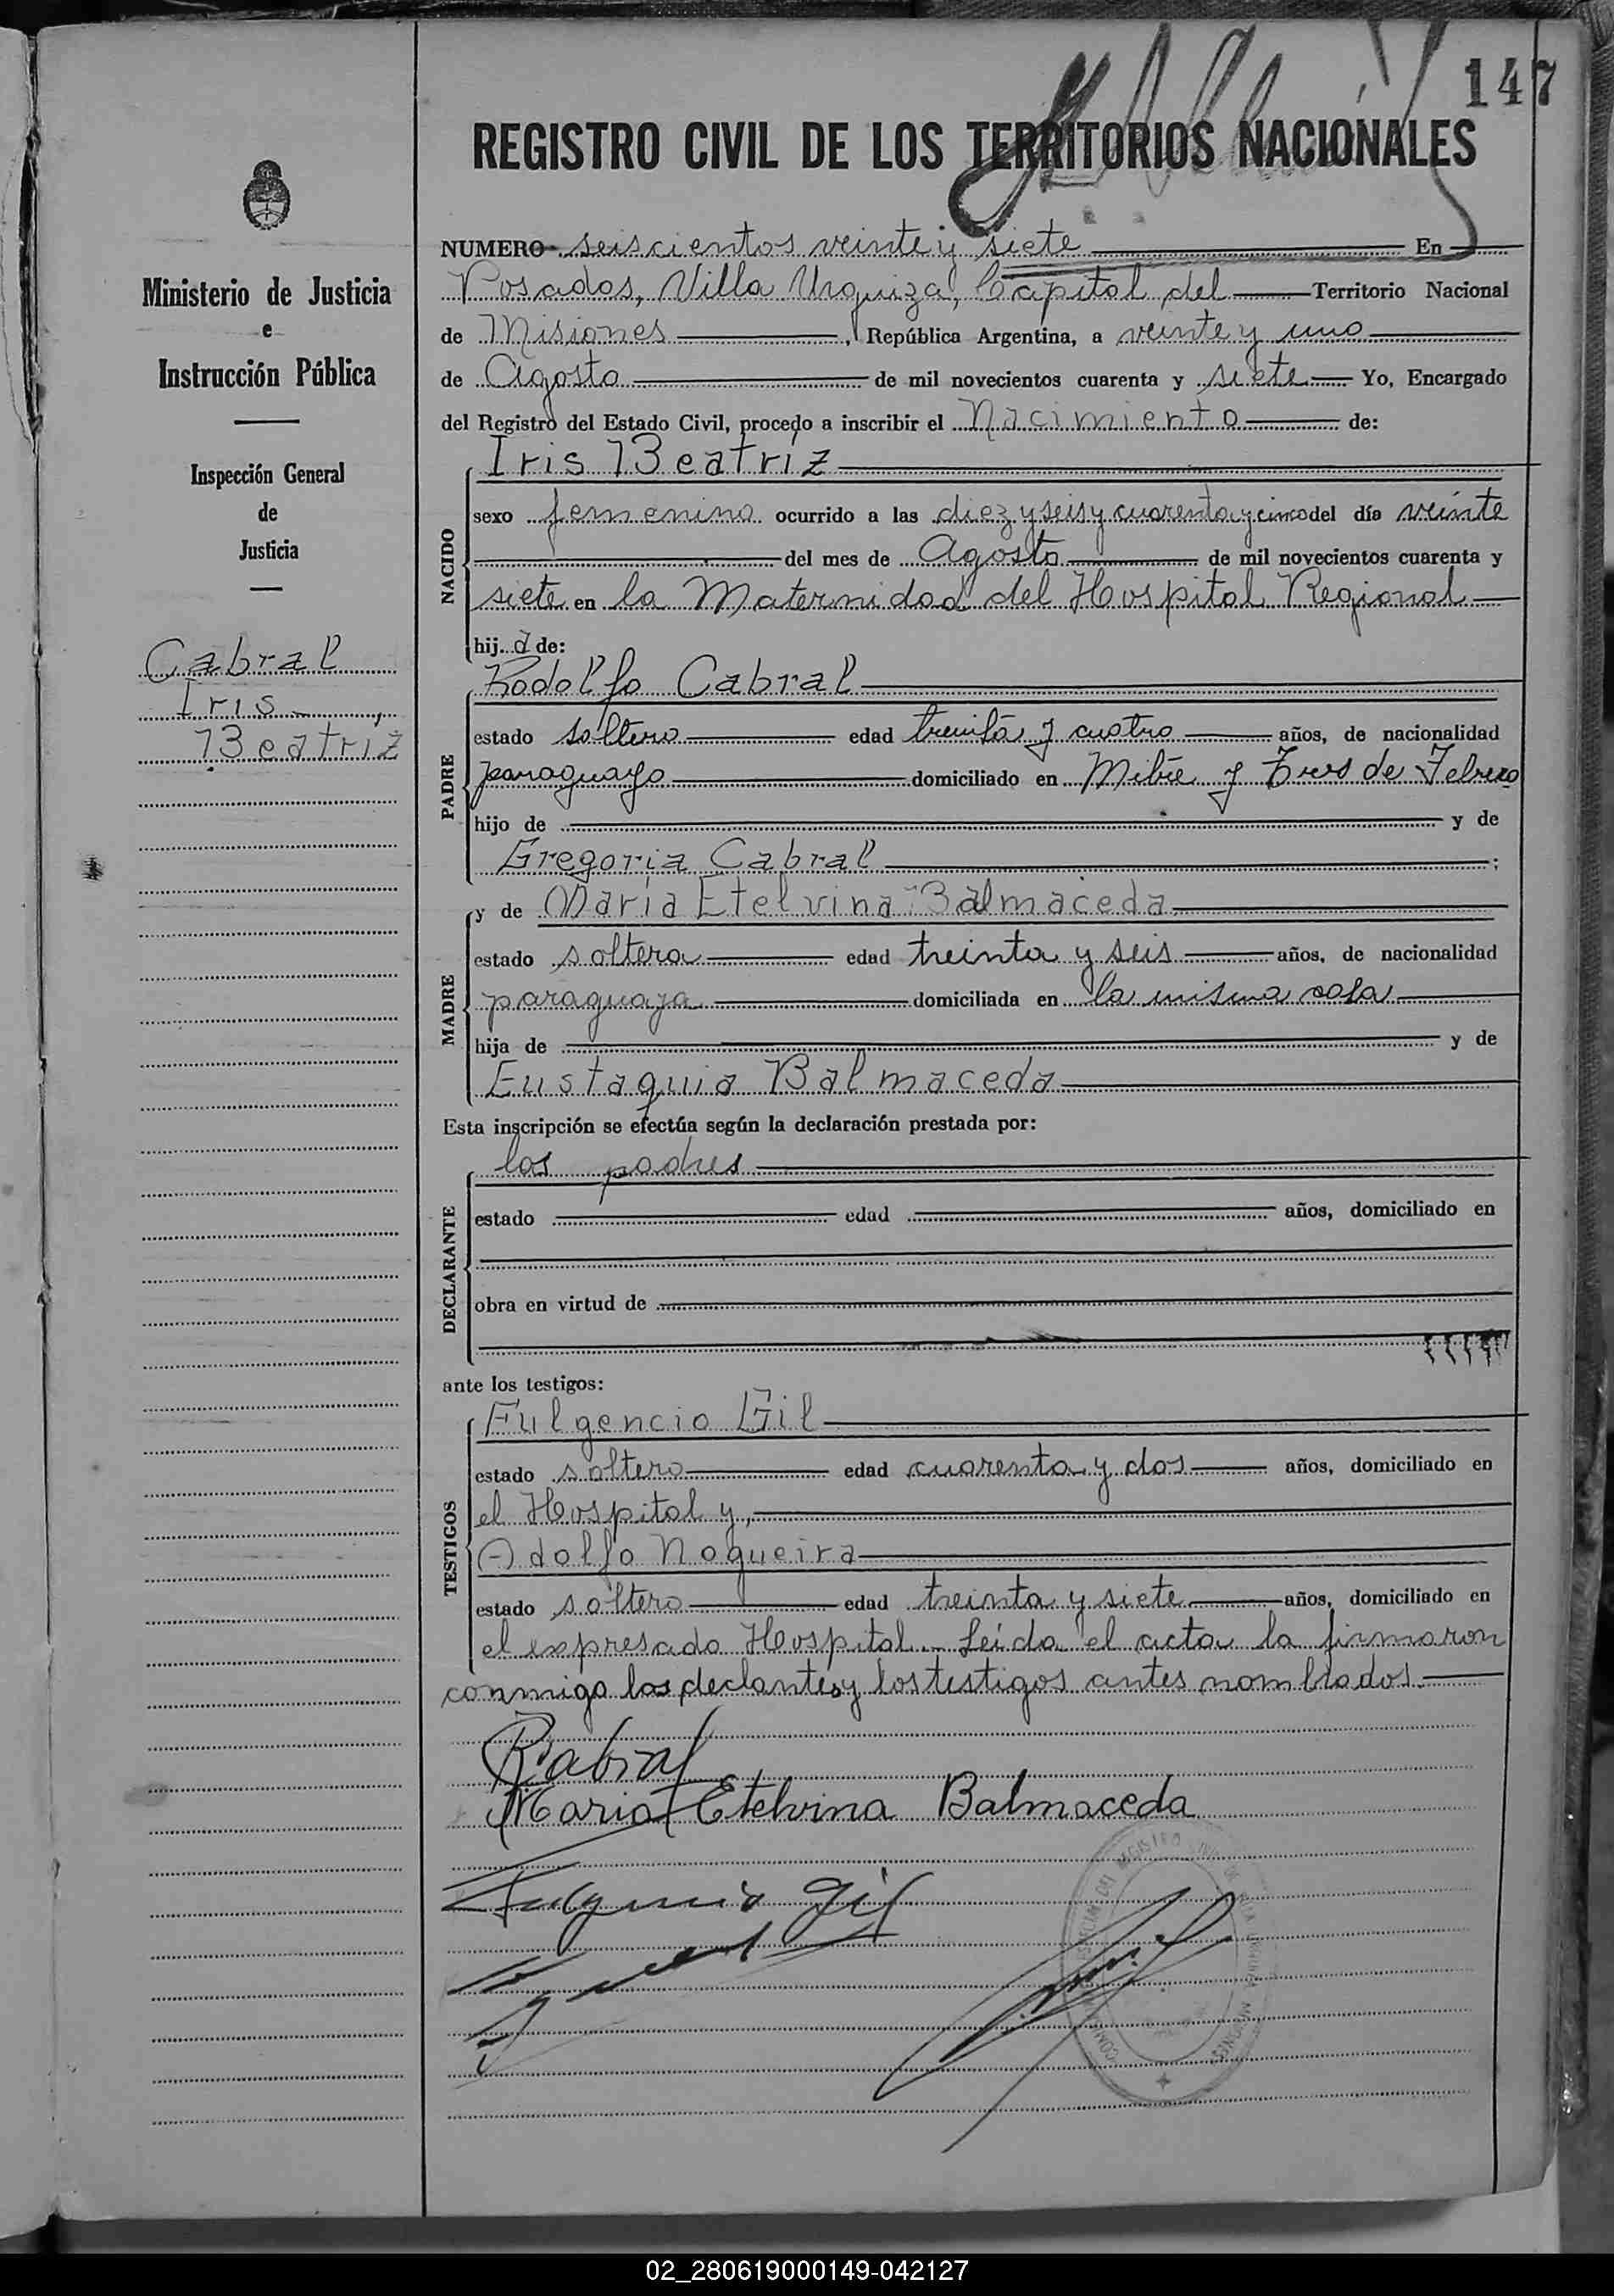 147
REGISTRO CIVIL DE LOS TERRITORIOS NACIONALES
Ministerio de Justicia
e
Instrucción Pública
Inspección General
de
Justicia
Cabral
Iris
Beatriz
NUMERO seiscientos veinte y siete En
Posadas, Villa Urquiza, Capital del Territorio Nacional
de Misiones, República Argentina, a veinte y uno
de Agosto de mil novecientos cuarenta y siete Yo, Encargado
del Registro del Estado Civil, procedo a inscribir el Nacimiento de:
Iris Beatriz
NACIDO
sexo femenino ocurrido a las diez y seis y cuarenta y cinco del día veinte
del mes de Agosto de mil novecientos cuarenta y
siete en la Maternidad del Hospital Regional
hija de:
Rodolfo Cabral
PADRE
estado soltero edad treinta y cuatro años, de nacionalidad
paraguayo domiciliado en Mitre y Tres de Febrero
hijo de y de
Gregoria Cabral;
MADRE
y de María Etelvina Balmaceda
estado soltera edad treinta y seis años, de nacionalidad
paraguaya domiciliada en la misma casa
hija de y de
Eustaquia Balmaceda
Esta inscripción se efectúa según la declaración prestada por:
los padres
DECLARANTE
estado edad años, domiciliado en
obra en virtud de
ante los testigos:
Fulgencio Gil
TESTIGOS
estado soltero edad cuarenta y dos años, domiciliado en
el Hospital y,
Adolfo Nogueira
estado soltero edad treinta y siete años, domiciliado en
el expresado Hospital. Leída el acta la firmaron
conmigo los declantes y los testigos antes nombrados.
RCabral
Maria Etelvina Balmaceda
Fulgencio Gil
02_280619000149-042127